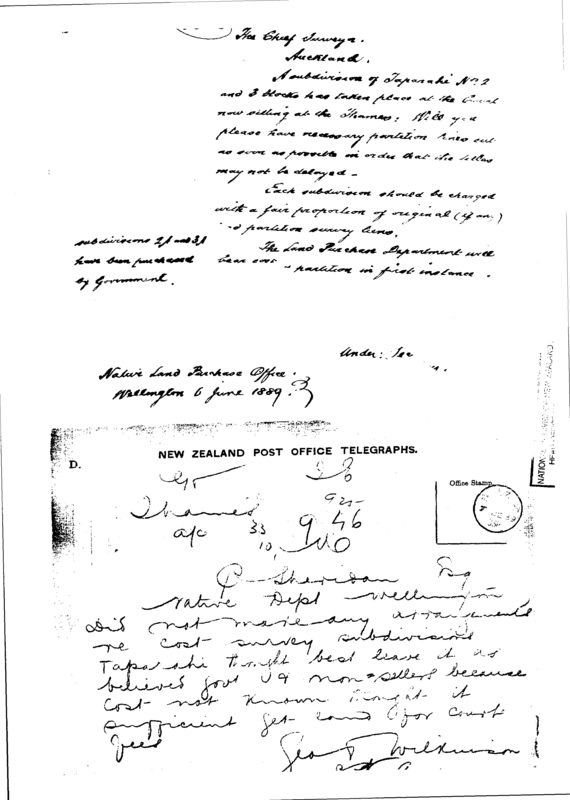 The Chief Surveyor.
Auckland.
A subdivision of Taparahi No: 2
and 3 blocks has taken place at the Court
now sitting at the Thames: Will you
please have necessary partition lines cut
as soon as possible in order that the titles
may not be delayed -
Each subdivision should be charged
with a fair proportion of original (if any)
partition survey liens.
The Land Purchase Department will
bear cost partition in first instance.
subdivisions 2A and 3A
have been purchased
by Government.
Under: Sec
Native Land Purchase Office.
Wellington 6 June 1889.
NEW ZEALAND POST OFFICE TELEGRAPHS.
D.
Office Stamp.
Thames
a/c 33
10
9 46
P Sheridan Esq
Native Dept Wellington
Did not make any arrangements
re cost survey subdivisions
Taparahi thought best leave it as
believed govt & non-sellers because
cost not known thought it
sufficient get land for court
fees
Geo T Wilkinson